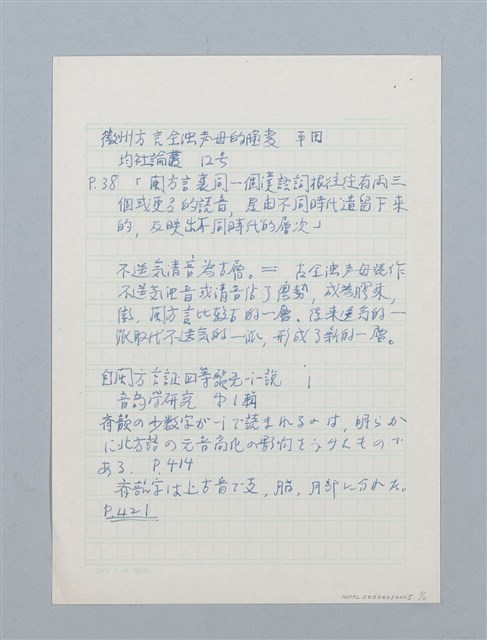 徽州方言全浊声母的演变 平田
均社論叢 12号
P.38 「閩方言裏同一個漢語詞根往往有两三
個或更多的語音, 是由不同時代遺留下来
的, 反映出不同時代的層次」
不送気清音為古層。= 古全浊声母読作
不送気浊音或清音佔了優勢, 或為膠東,
徽, 閩方言比較古的一層. 後来送気的一
派取代不送気的一派, 形成了新的一層。
自閩方言証四等韻无-i-說 i
音韵学研究 第1輯
齊韻の少数字が-iで読まれるのは, 明らか
に北方語の元音高化の影响をうけたもので
ある. P.414
齊韵字は上古音で支, 脂, 月部に分れた。
P.421
NMTL20200010005 1/2